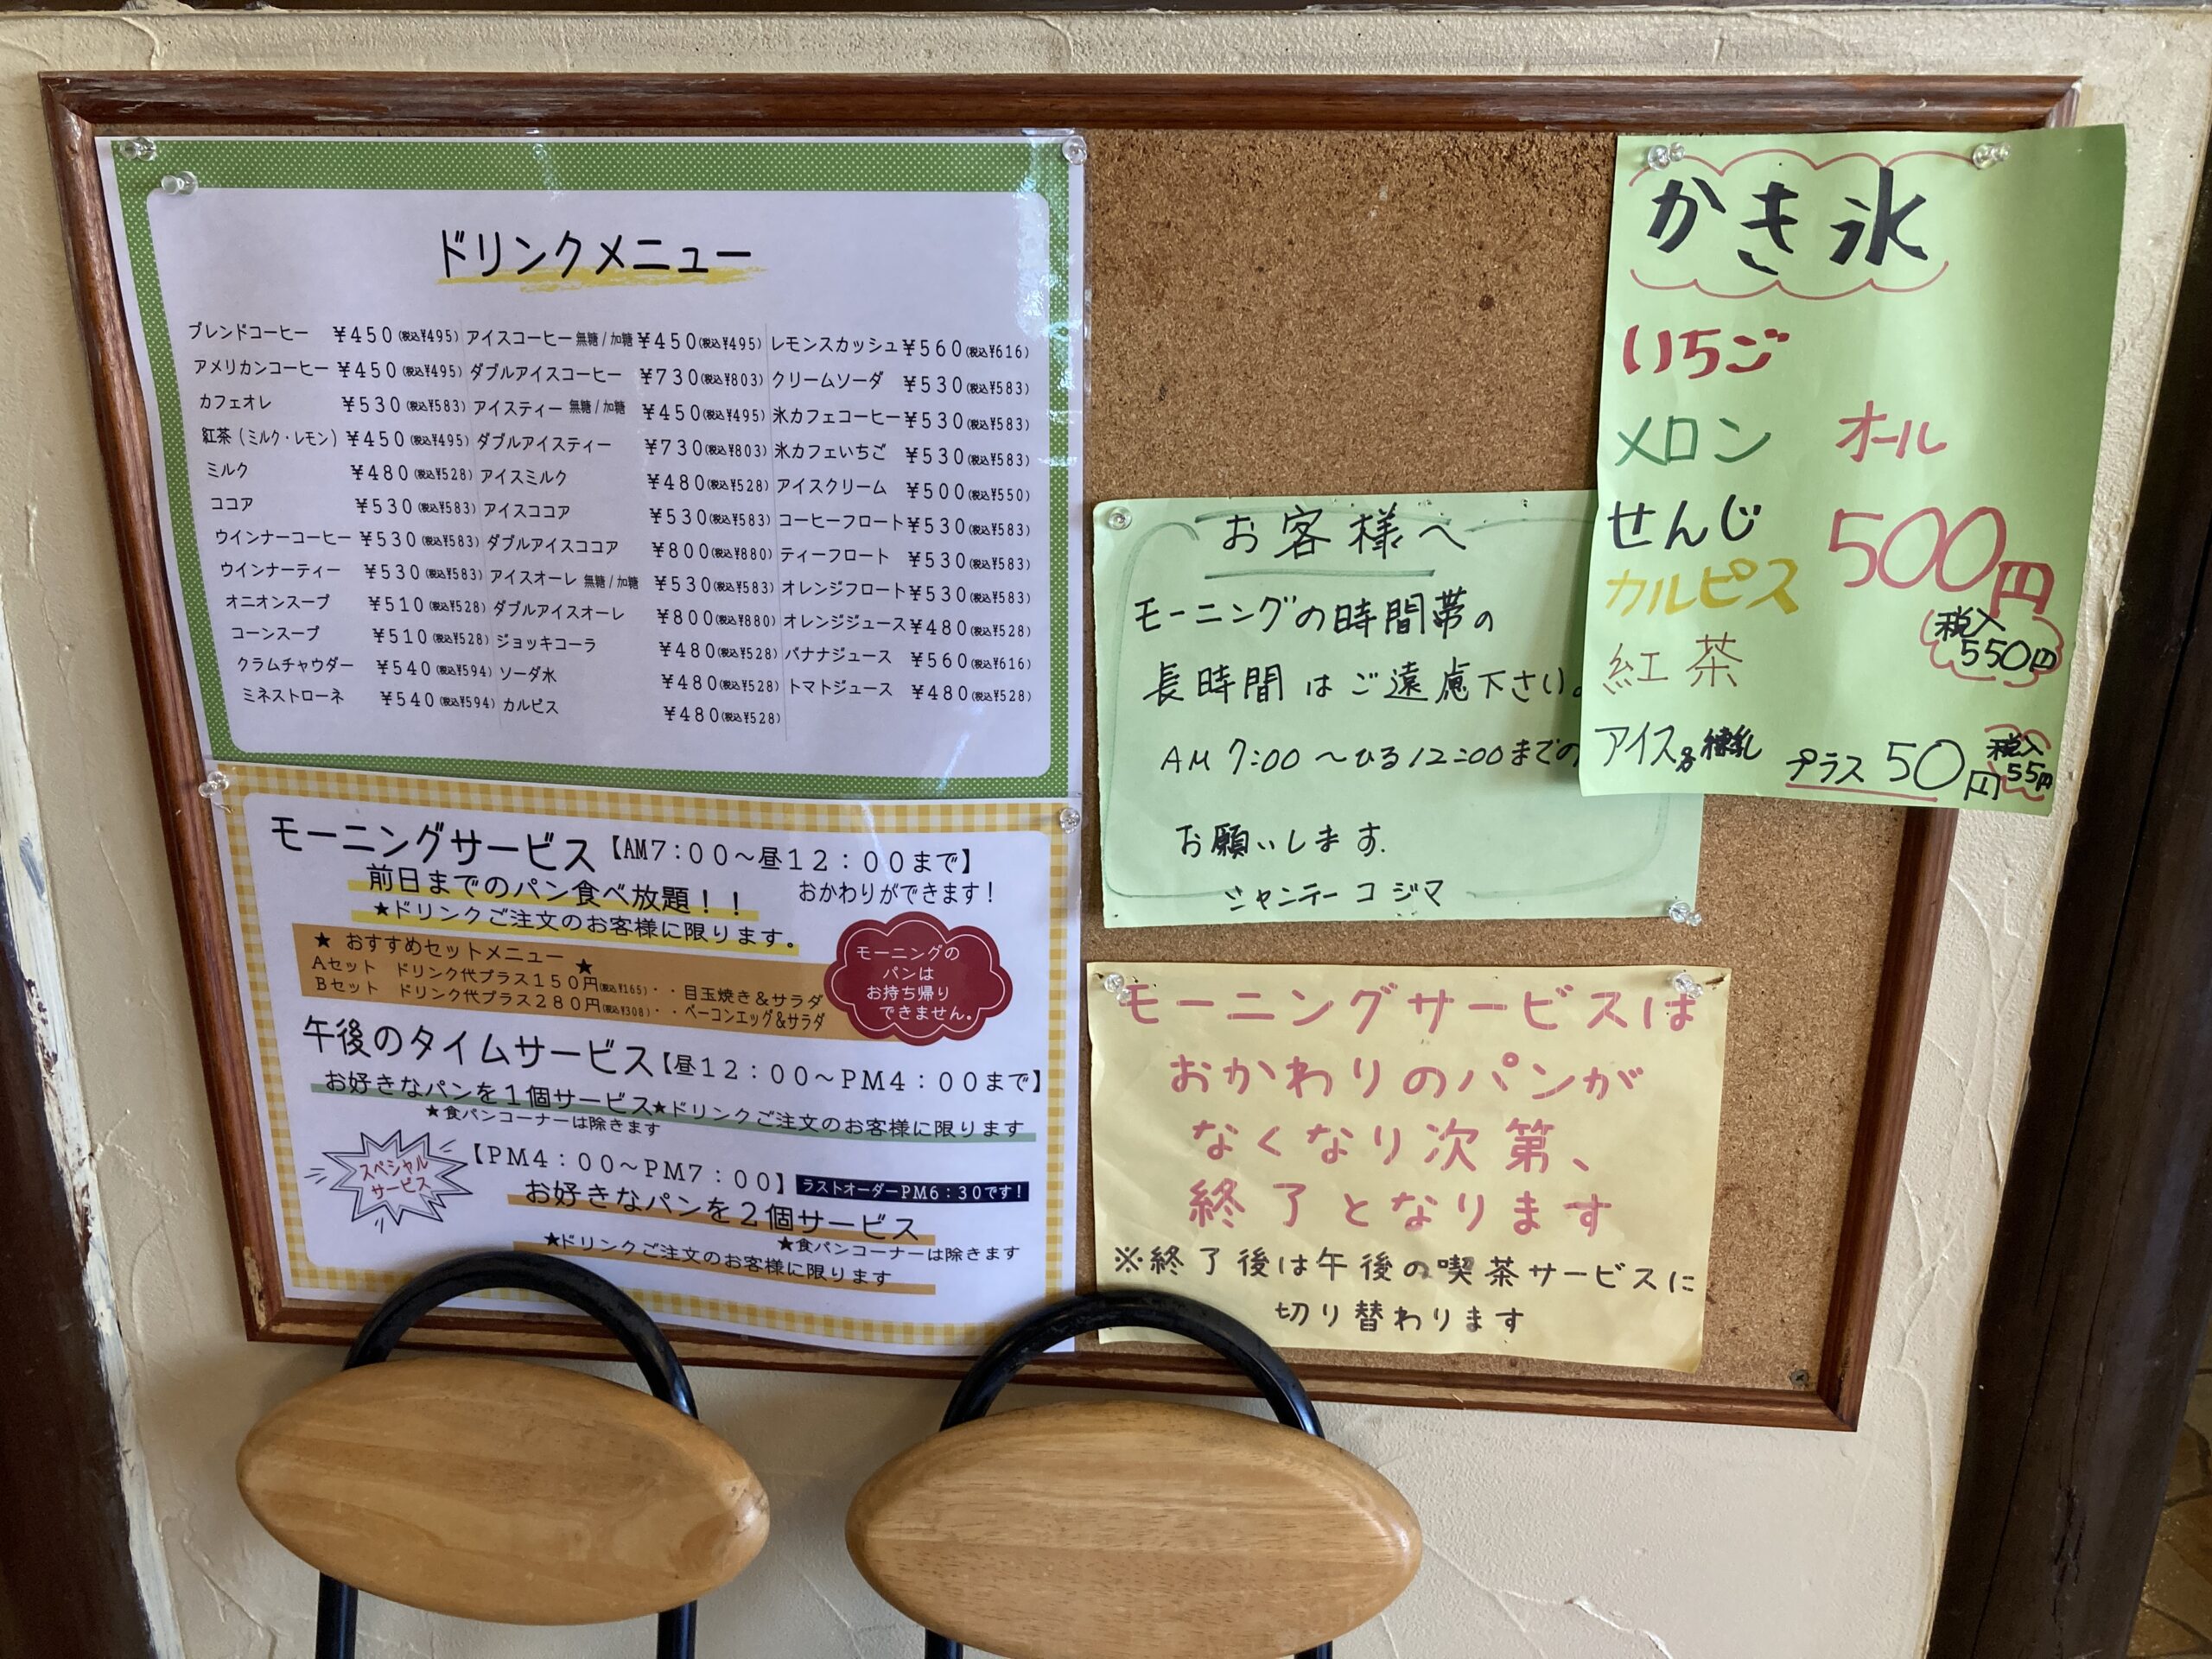 ドリンクメニュー
ブレンドコーヒー ¥450(税込¥495)
アメリカンコーヒー ¥450(税込¥495)
カフェオレ ¥530(税込¥583)
紅茶(ミルク・レモン) ¥450(税込¥495)
ミルク ¥480(税込¥528)
ココア ¥530(税込¥583)
ウインナーコーヒー ¥530(税込¥583)
ウインナーティー ¥530(税込¥583)
オニオンスープ ¥510(税込¥528)
コーンスープ ¥510(税込¥528)
クラムチャウダー ¥540(税込¥594)
ミネストローネ ¥540(税込¥594)
アイスコーヒー 無糖/加糖 ¥450(税込¥495)
ダブルアイスコーヒー ¥730(税込¥803)
アイスティー 無糖/加糖 ¥450(税込¥495)
ダブルアイスティー ¥730(税込¥803)
アイスミルク ¥480(税込¥528)
アイスココア ¥530(税込¥583)
ダブルアイスココア ¥800(税込¥880)
アイスオーレ 無糖/加糖 ¥530(税込¥583)
ダブルアイスオーレ ¥800(税込¥880)
ジョッキコーラ ¥480(税込¥528)
ソーダ水 ¥480(税込¥528)
カルピス ¥480(税込¥528)
レモンスカッシュ ¥560(税込¥616)
クリームソーダ ¥530(税込¥583)
氷カフェコーヒー ¥530(税込¥583)
氷カフェいちご ¥530(税込¥583)
アイスクリーム ¥500(税込¥550)
コーヒーフロート ¥530(税込¥583)
ティーフロート ¥530(税込¥583)
オレンジフロート ¥530(税込¥583)
オレンジジュース ¥480(税込¥528)
バナナジュース ¥560(税込¥616)
トマトジュース ¥480(税込¥528)
モーニングサービス【AM7:00〜昼12:00まで】
前日までのパン食べ放題!! おかわりができます!
★ドリンクご注文のお客様に限ります。
★ おすすめセットメニュー ★
Aセット ドリンク代プラス150円(税込¥165)・・目玉焼き&サラダ
Bセット ドリンク代プラス280円(税込¥308)・・ベーコンエッグ&サラダ
モーニングの
パンは
お持ち帰り
できません。
午後のタイムサービス【昼12:00〜PM4:00まで】
お好きなパンを1個サービス★ドリンクご注文のお客様に限ります
★食パンコーナーは除きます
スペシャル
サービス
【PM4:00〜PM7:00】 ラストオーダーPM6:30です!
お好きなパンを2個サービス
★食パンコーナーは除きます
★ドリンクご注文のお客様に限ります
お客様へ
モーニングの時間帯の
長時間はご遠慮下さい。
AM 7:00〜ひる12:00までの
お願いします.
シャンテーコジマ
モーニングサービスは
おかわりのパンが
なくなり次第、
終了となります
※終了後は午後の喫茶サービスに
切り替わります
かき氷
いちご
メロン
せんじ
カルピス
紅茶
オール
500円
税込
550円
アイス 練乳 プラス 50円 税込
55円